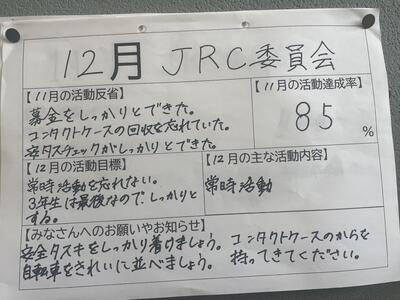 12月 JRC委員会
【11月の活動反省】
募金をしっかりとできた。
コンタクトケースの回収を忘れていた。
安タスチェックがしっかりとできた。
【11月の活動達成率】
85
%
【12月の活動目標】
常時活動を忘れない。
3年生は最後なのでしっかりと
する。
【12月の主な活動内容】
常時活動
【みなさんへのお願いやお知らせ】
安全タスキをしっかり着けましょう。
自転車をきれいに並べましょう。
コンタクトケースのからを
持ってきてください。